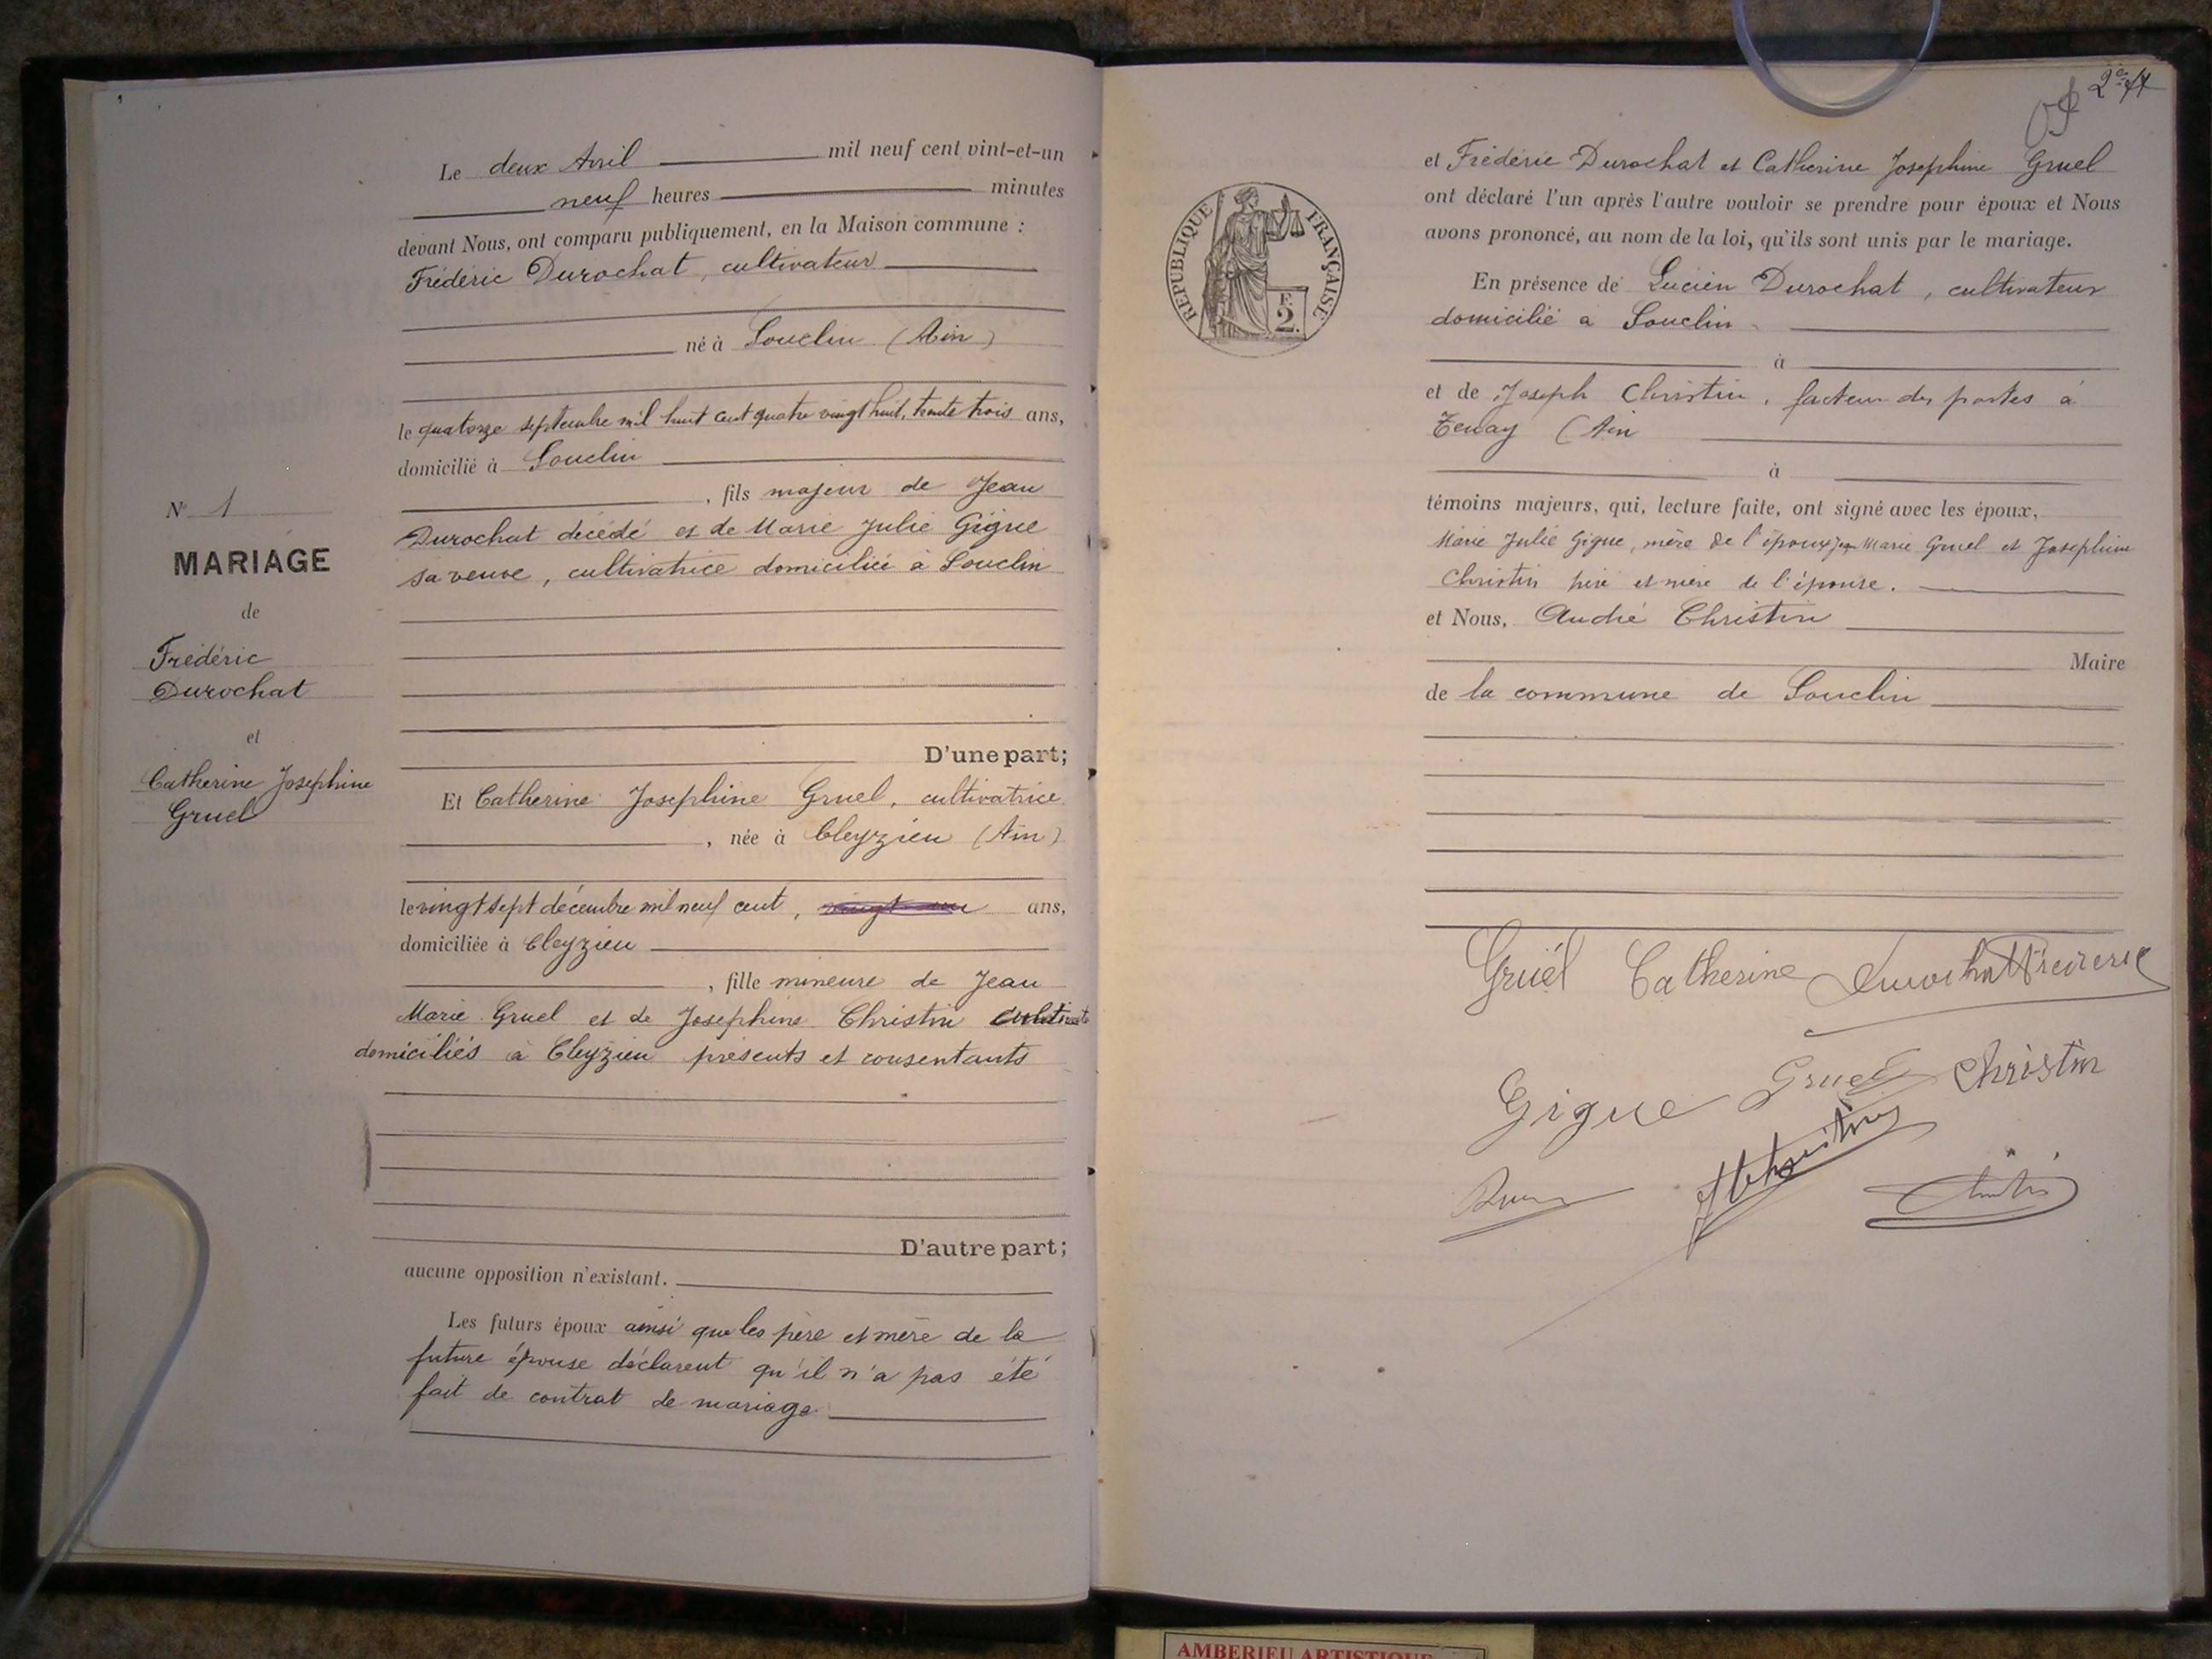 Le deux Avril mil neuf cent vint-et-un
neuf heures minutes
devant Nous, ont comparu publiquement, en la Maison commune :
Frédéric Durochat, cultivateur
né à Souclin (Ain)
le quatorze septembre mil huit cent quatre vingt huit, trente trois ans,
domicilié à Souclin
, fils majeur de Jean
Durochat décédé et de Marie Julie Gigue
sa veuve, cultivatrice domiciliée à Souclin
N° 1
MARIAGE
de
Frédéric
Durochat
et
Catherine Josephine
Gruel
D'une part;
Et Catherine Josephine Gruel, cultivatrice
, née à Cleyzieu (Ain)
le vingt sept décembre mil neuf cent, ans,
domiciliée à Cleyzieu
, fille mineure de Jean
Marie Gruel et de Josephine Christin
domiciliés à Cleyzieu présents et consentants
D'autre part;
aucune opposition n'existant.
Les futurs époux ainsi que les père et mère de la
future épouse déclarent qu'il n'a pas été
fait de contrat de mariage
2e
et Frédéric Durochat et Catherine Josephine Gruel
ont déclaré l'un après l'autre vouloir se prendre pour époux et Nous
avons prononcé, au nom de la loi, qu'ils sont unis par le mariage.
RÉPUBLIQUE FRANÇAISE
F.
2.
En présence de Lucien Durochat, cultivateur
domicilié à Souclin
à
et de Joseph Christin, facteur des postes à
Tenay (Ain
à
témoins majeurs, qui, lecture faite, ont signé avec les époux,
Marie Julie Gigue, mère de l'époux Jean Marie Gruel et Josephine
Christin père et mère de l'épouse.
et Nous, André Christin
Maire
de la commune de Souclin
Gruël Catherine Durochat Frederic
Gigue Gruel Christin
AMBERIEU ARTISTIQUE